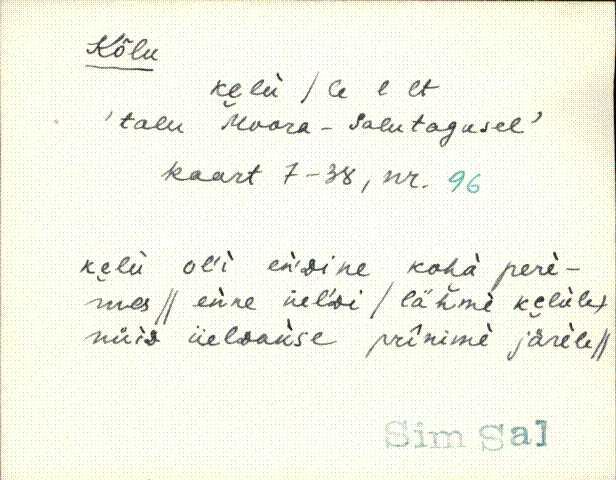 Kõlu
kelù / le l lt
'talu Moora-Salutagusel'
kaart 7-38, nr. 96
kelù ol'ì eǹdine kohà perè-
mes // enne üel'di / lähmè kelùle,
nüiD üelDaùse prinimè järèle //
Sim Sal